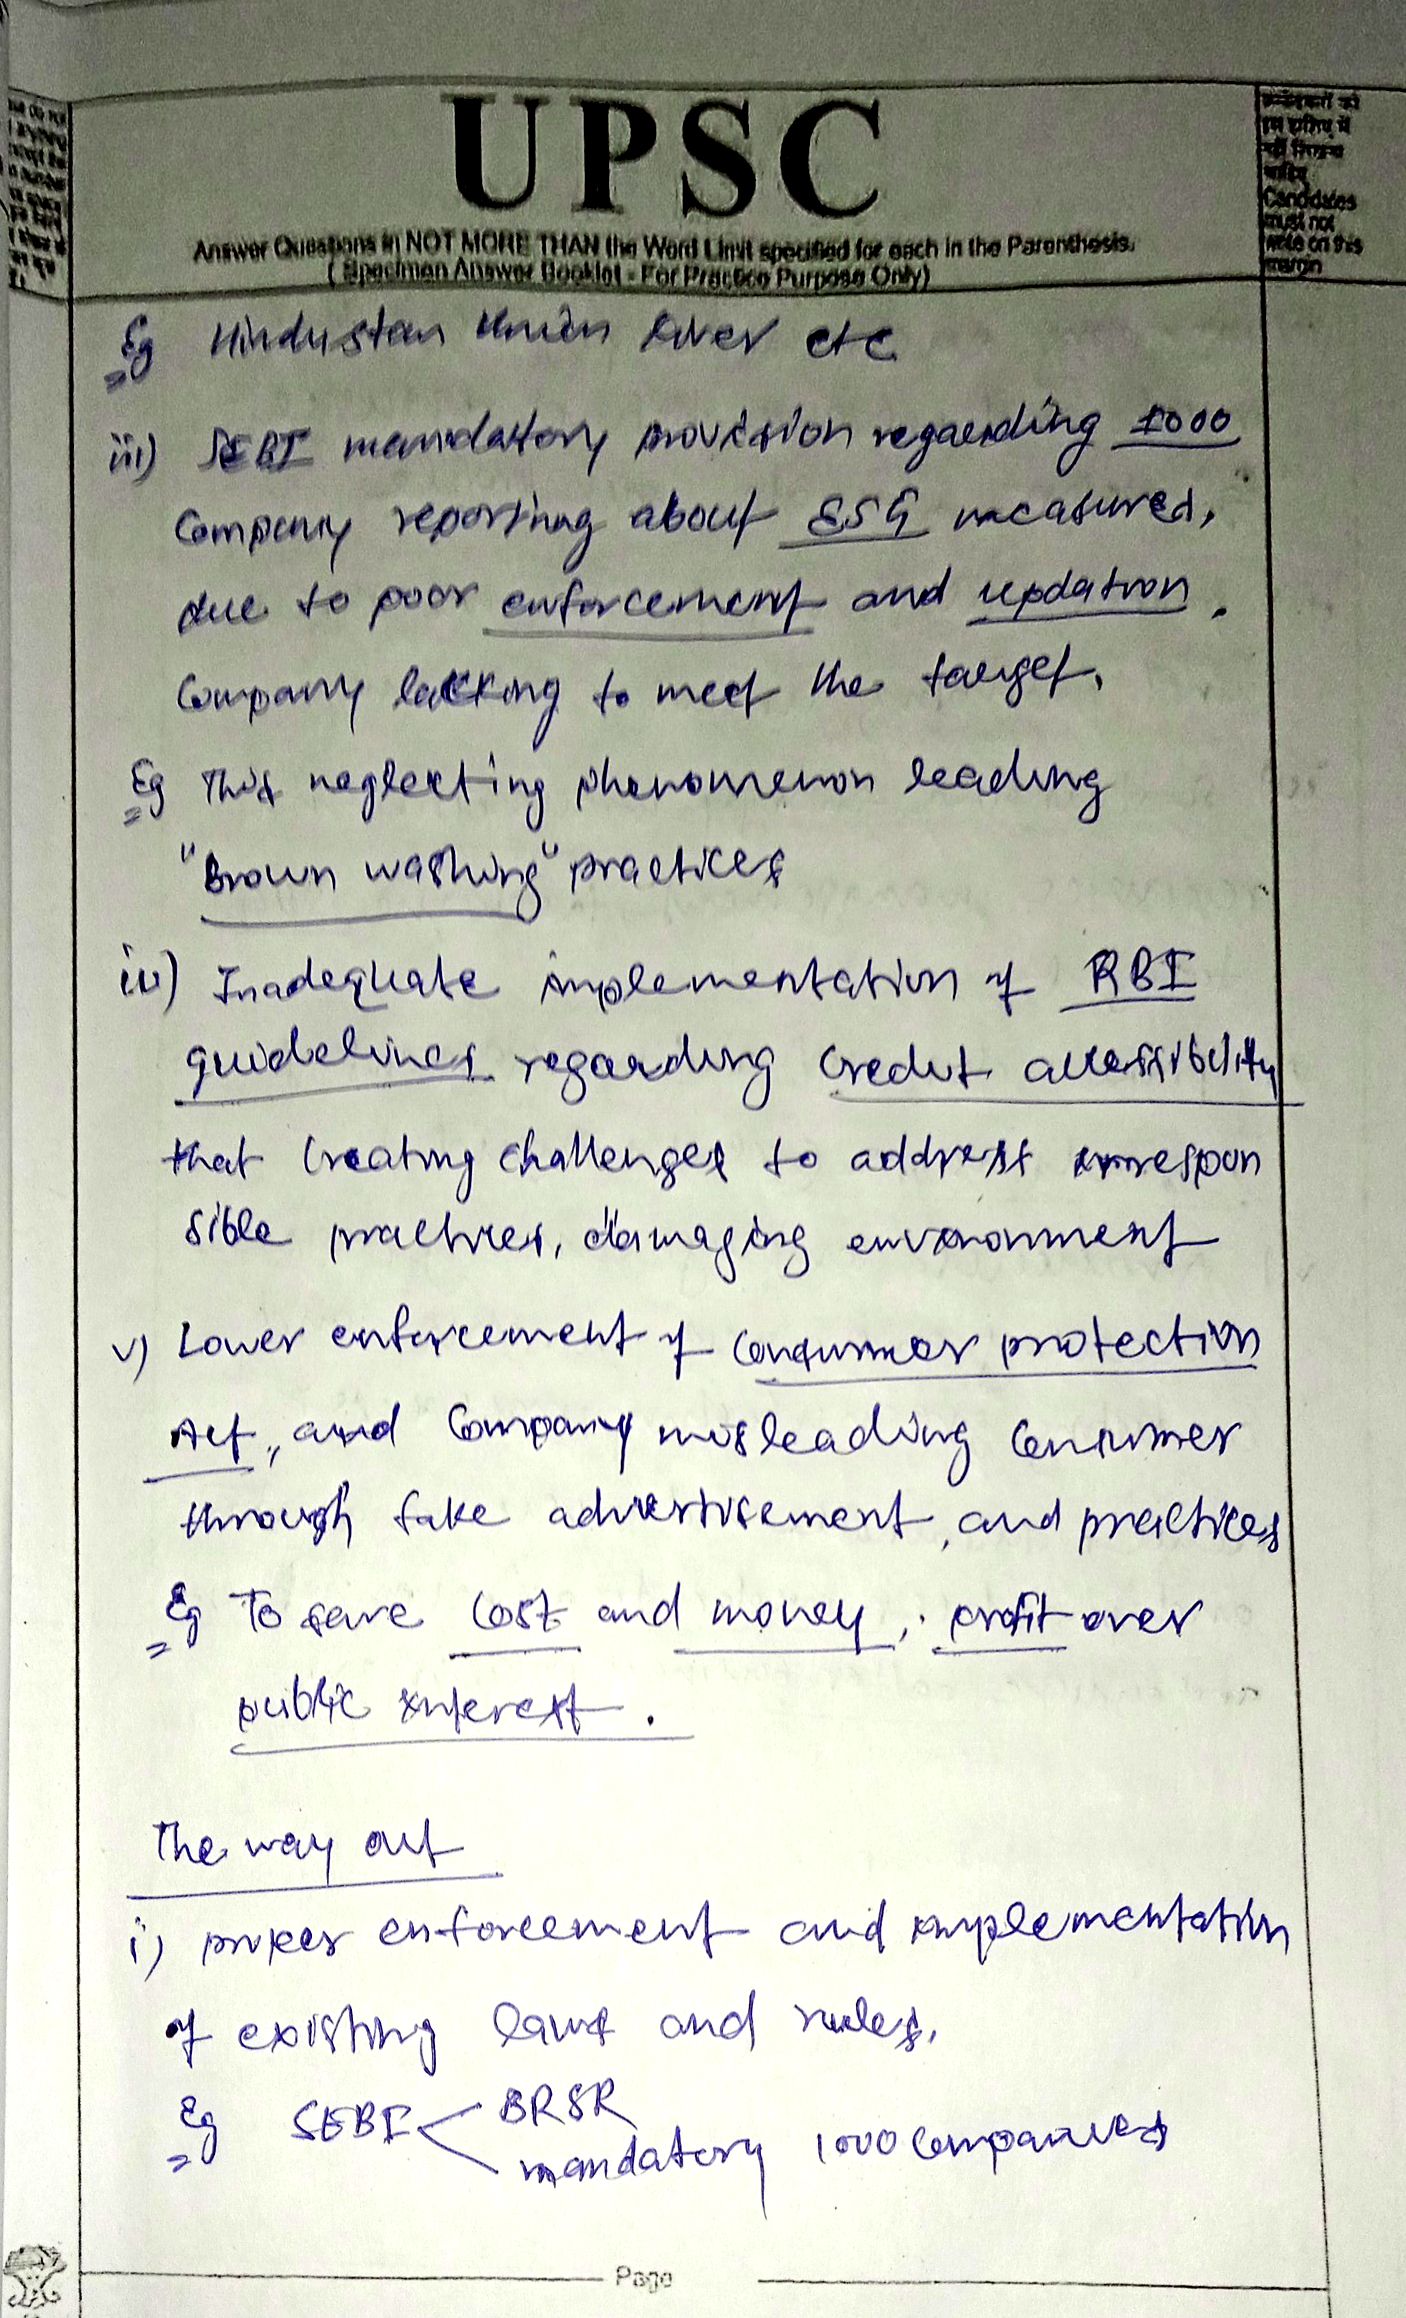 UPSC
Answer Questions in NOT MORE THAN the Word Limit specified for each in the Parenthesis.
( Specimen Answer Booklet - For Practice Purpose Only)
Candidates
must not
write on this
margin
Eg Hindustan Unien Liver etc
iii) SEBI mandatory provision regarding 1000
Company reporting about ESG measured,
due to poor enforcement and updation.
Company lacking to meet the target.
Eg This neglecting phenomenon leading
"Brown washing" practices
iv) Inadequate implementation of RBI
guidelines regarding Credit accessibility
that creating challenges to address irrespon
sible practices, damaging environment
v) Lower enforcement of Consumer protection
Act, and Company misleading Consumer
through fake advertisement, and practices
Eg To save cost and money, profit over
public interest.
The way out
i) proper enforcement and implementation
of existing laws and rules,
Eg SEBI BRSR
mandatory 1000 Companies
Page